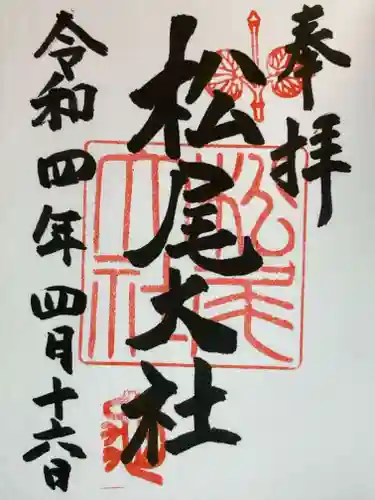 奉拝
松尾大社
令和四年四月十六日
松尾大社